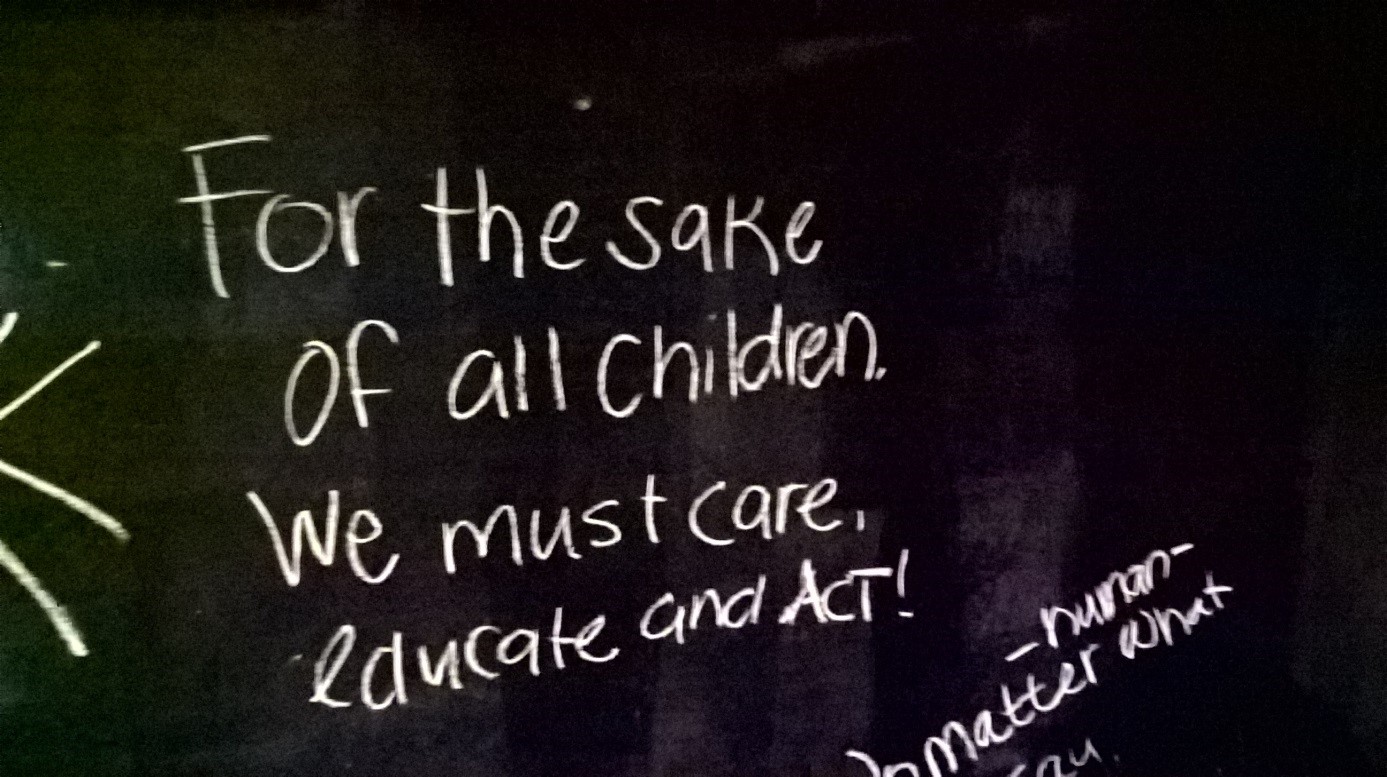 For the sake
of all children.
We must care,
educate and ACT!
-human-
matter what